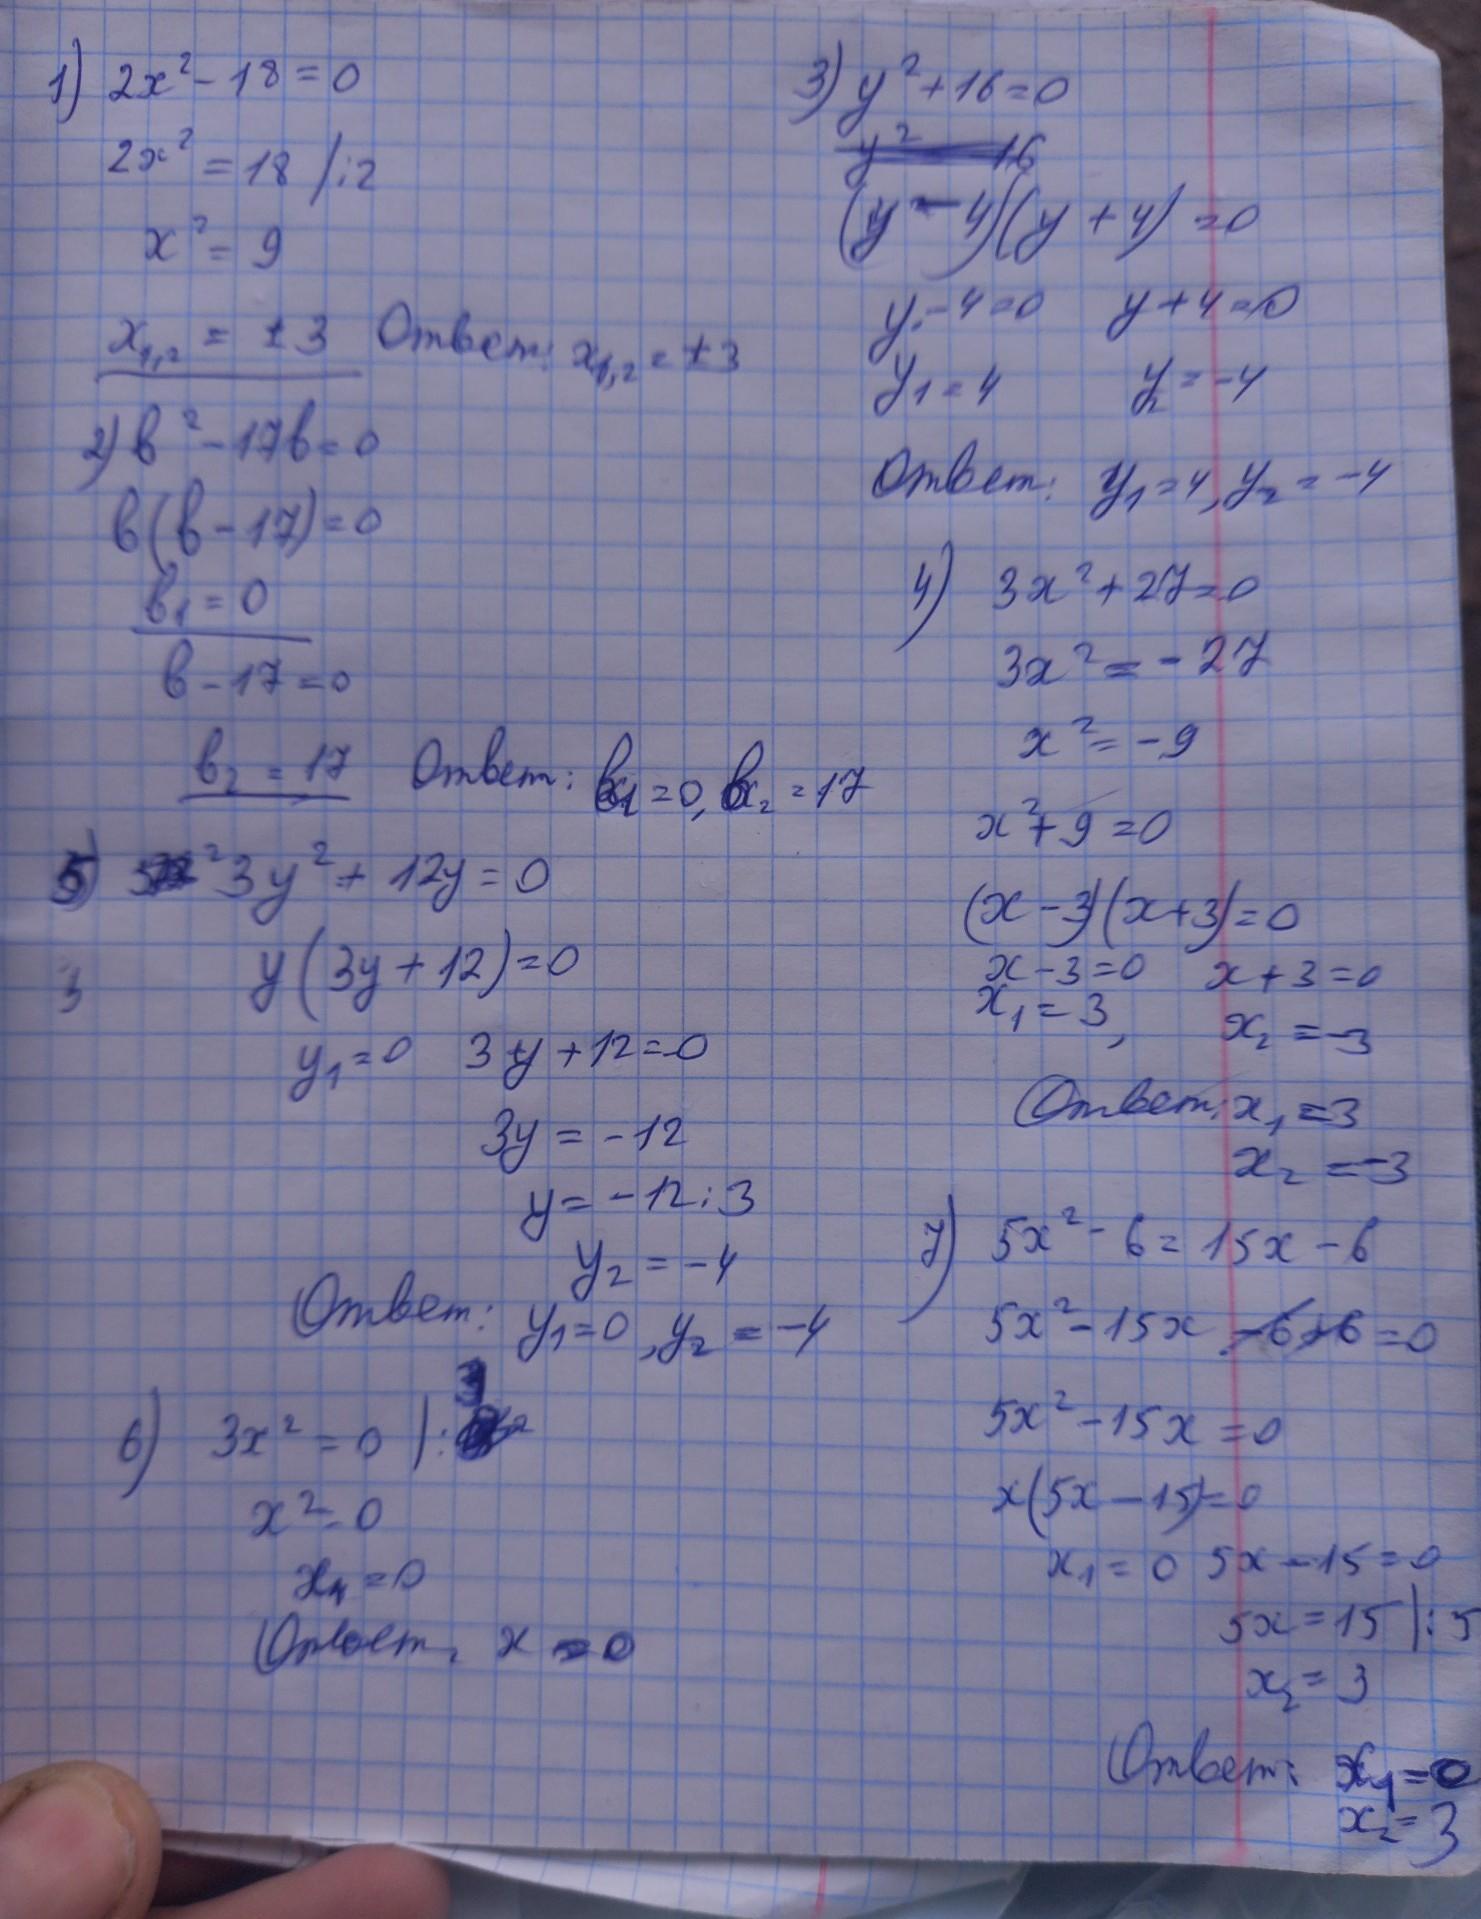 1) 2x² - 18 = 0
2x² = 18 /:2
x² = 9
x₁,₂ = ±3 Ответ: x₁,₂ = ±3
2) в² - 17в = 0
в(в - 17) = 0
в₁ = 0
в - 17 = 0
в₂ = 17 Ответ: в₁ = 0, в₂ = 17
5) 3y² + 12y = 0
3 y(3y + 12) = 0
y₁ = 0 3y + 12 = 0
3y = -12
y = -12 : 3
y₂ = -4
Ответ: y₁ = 0, y₂ = -4
6) 3x² = 0 |:3
x² = 0
x₁ = 0
Ответ: x = 0
3) y² + 16 = 0
y² 16
(y - 4)(y + 4) = 0
y - 4 = 0 y + 4 = 0
y₁ = 4 y₂ = -4
Ответ: y₁ = 4, y₂ = -4
4) 3x² + 27 = 0
3x² = -27
x² = -9
x² + 9 = 0
(x - 3)(x + 3) = 0
x - 3 = 0 x + 3 = 0
x₁ = 3, x₂ = -3
Ответ: x₁ = 3
x₂ = -3
7) 5x² - 6 = 15x - 6
5x² - 15x - 6 + 6 = 0
5x² - 15x = 0
x(5x - 15) = 0
x₁ = 0 5x - 15 = 0
5x = 15 |:5
x₂ = 3
Ответ: x₁ = 0
x₂ = 3